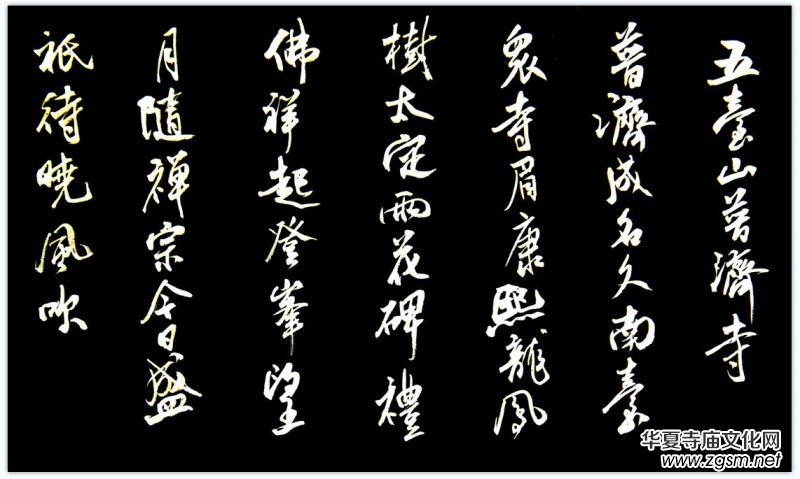 五臺山普濟寺
普濟成名久南臺
眾寺眉康熙龍鳳
樹太定雨花碑禮
佛祥起登峯望
月隨禪宗今日盛
祇待曉風吹
华夏寺庙文化网
www.zgsm.net